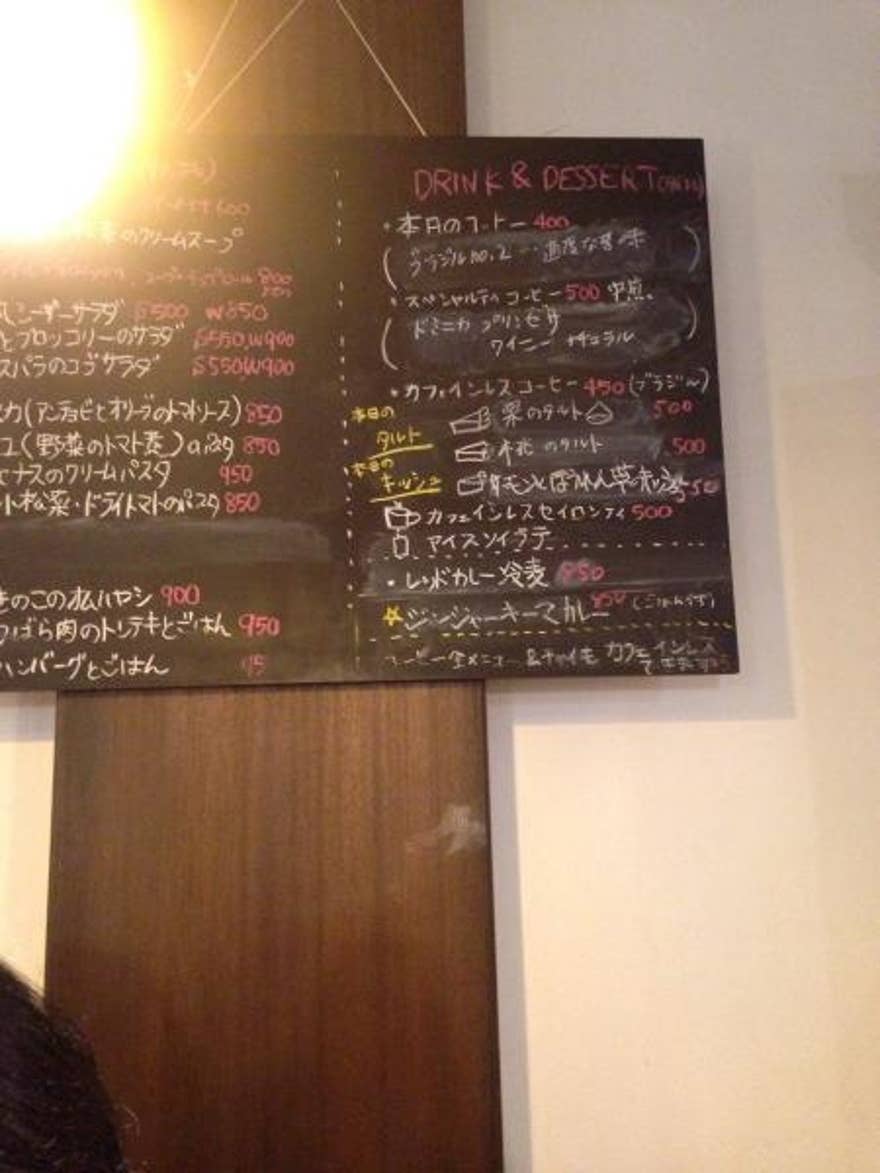 600
のクリームスープ
800
シーザーサラダ S500 W850
とブロッコリーのサラダ S550,W900
スパラのコブサラダ S550,W900
カ(アンチョビとオリーブのトマトソース)850
ユ(野菜のトマト煮) 850
ナスのクリームパスタ 950
ト小松菜・ドライトマトのパスタ 850
きのこのオムハヤシ 900
ばら肉のトンテキとごはん 950
ハンバーグとごはん
DRINK & DESSERT
・本日のコーヒー 400
(ブラジルNo.2 … 適度な苦味)
・スペシャルティコーヒー 500 中煎
(ドミニカ プリンセサ
ワイニー ナチュラル)
・カフェインレスコーヒー 450(ブラジル)
本日の
タルト
栗のタルト 500
桃のタルト 500
本日の
キッシュ
サーモンとほうれん草
カフェインレスセイロンティ 500
アイスソイラテ
・レッドカレー冷麦 850
☆ジンジャーキーマカレー 850
コーヒー全メニュー &チャイも カフェインレス
できます